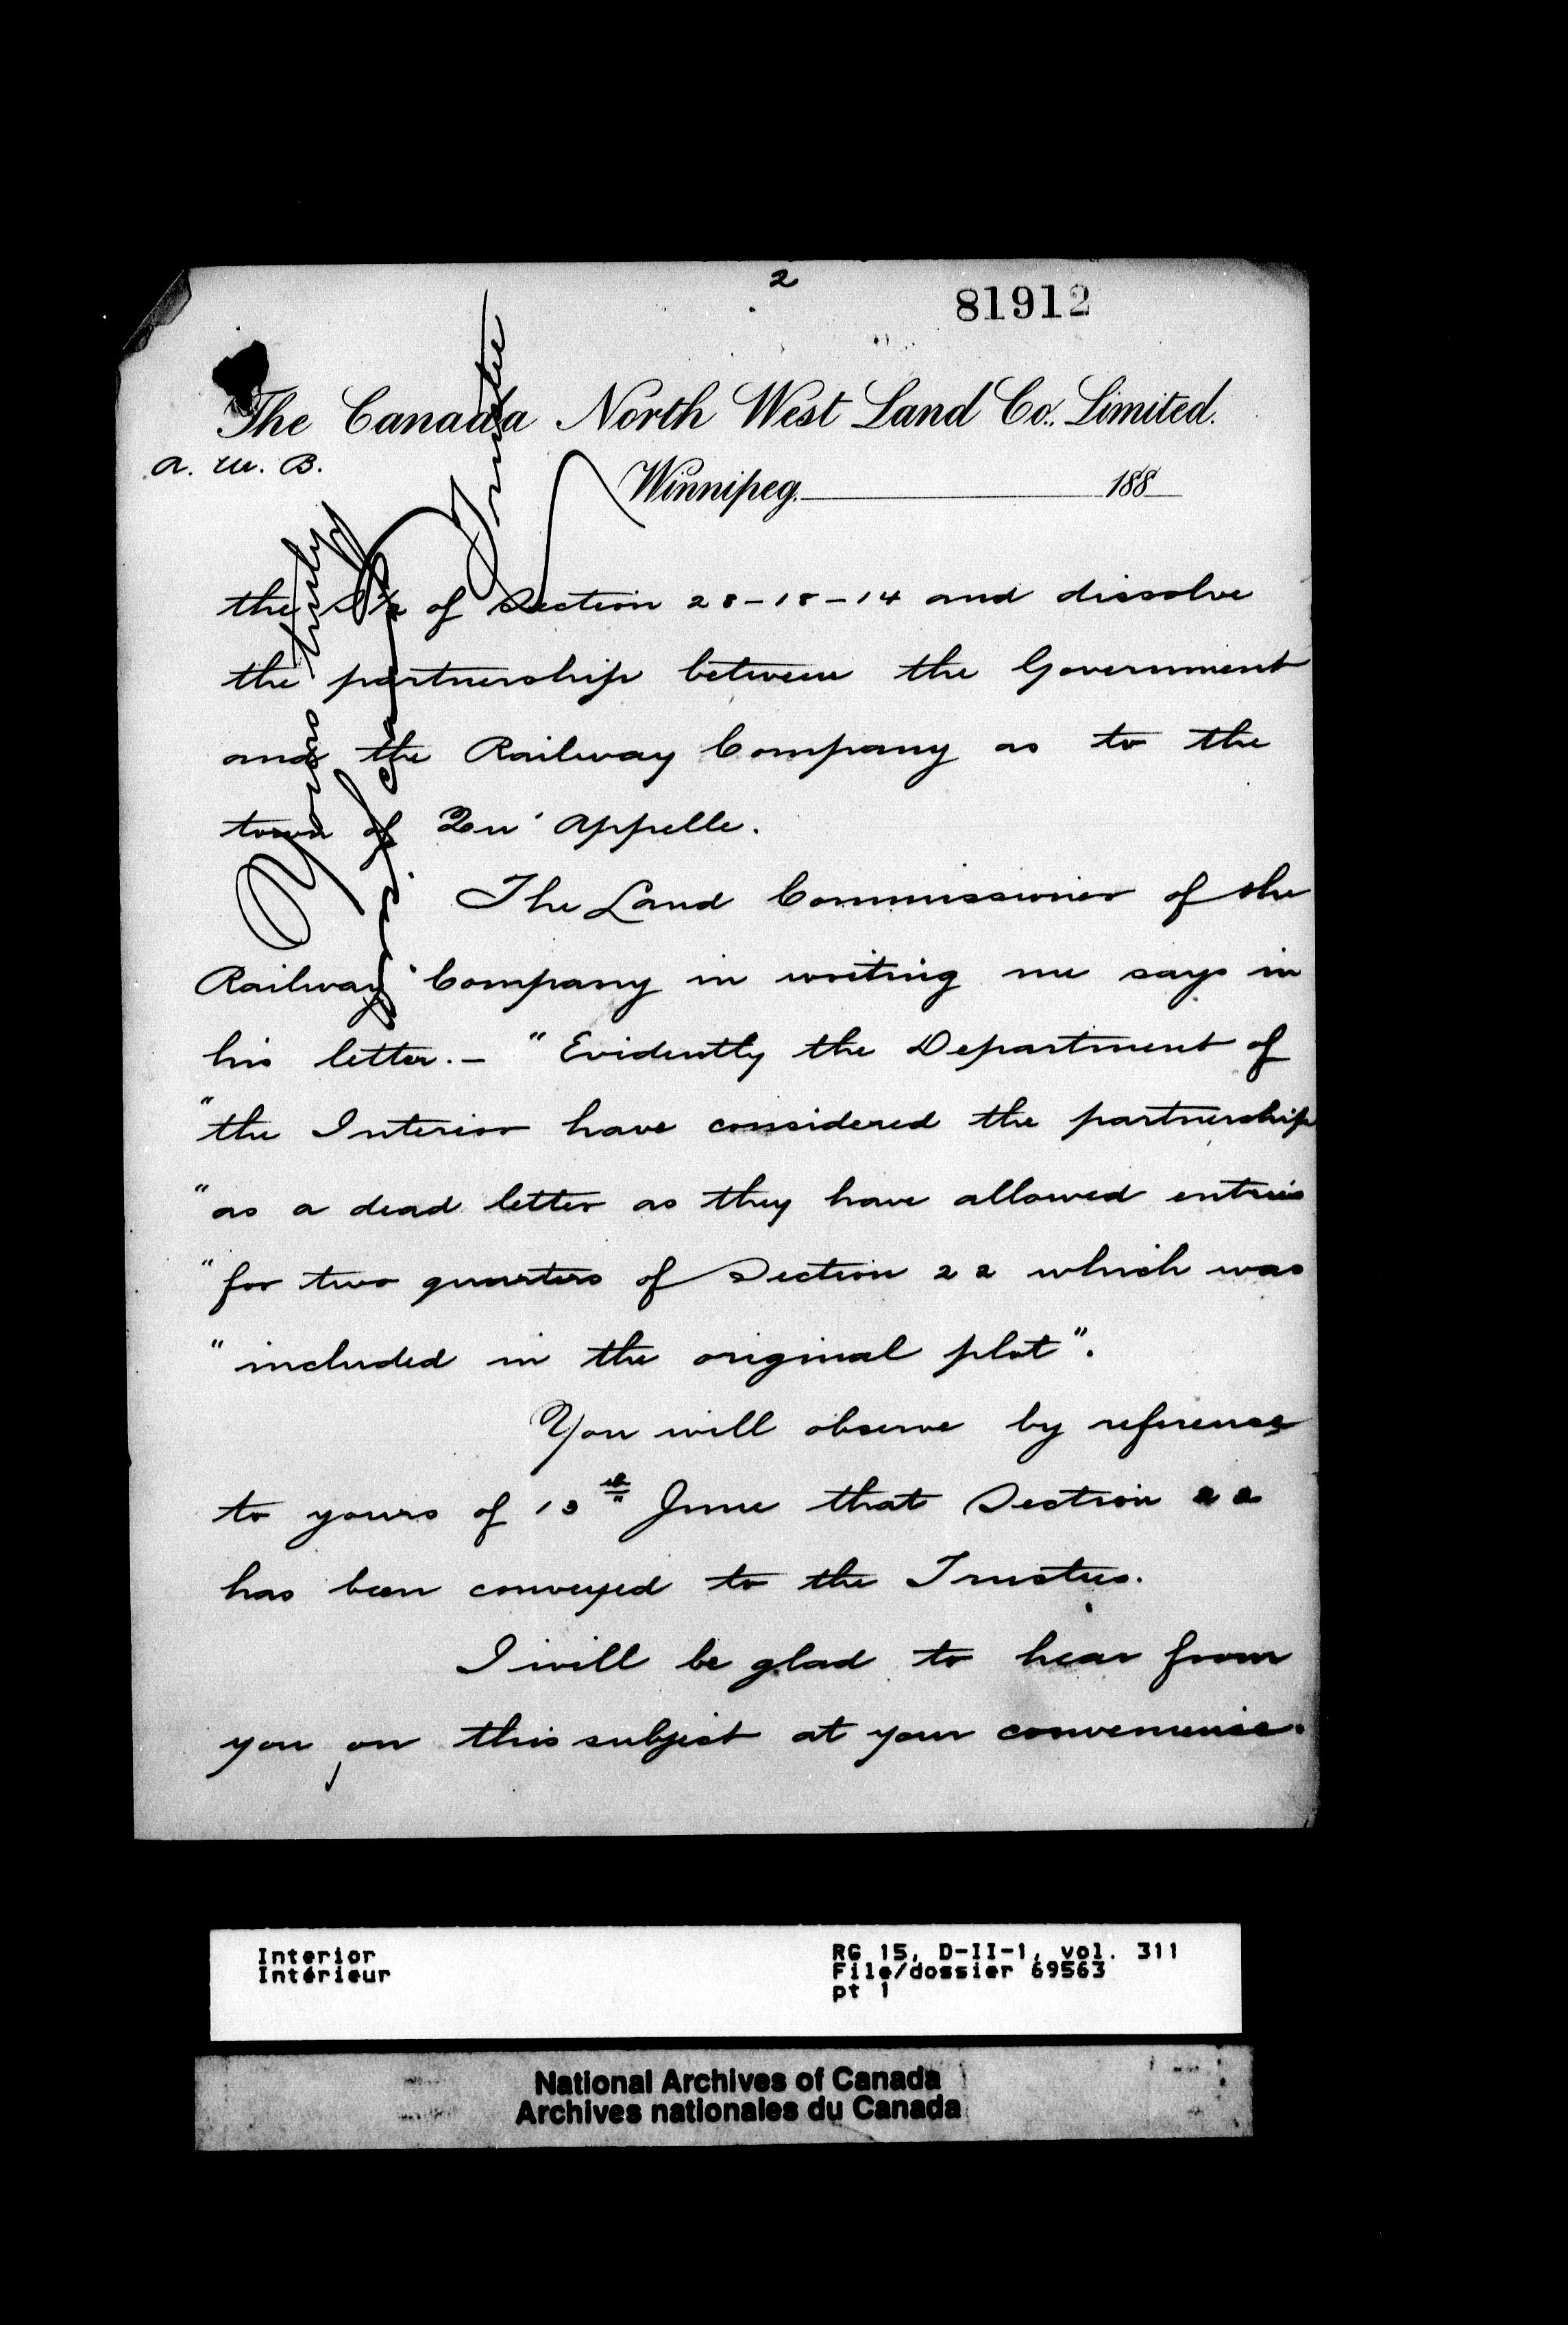 2
81912
The Canada North West Land Co. Limited.
A. W. B.
Winnipeg 188
the S½ of Section 28-18-14 and dissolve
the partnership between the Government
and the Railway Company as to the
town of Qu'Appelle.
The Land Commissioner of the
Railway Company in writing me says in
his letter.- "Evidently the Department of
"the Interior have considered the partnership
"as a dead letter as they have allowed entries
"for two quarters of Section 22 which was
"included in the original plot".
You will observe by reference
to yours of 13th June that Section 22
has been conveyed to the Trustees.
I will be glad to hear from
you on this subject at your convenience.
Yours truly
Trustee
Interior
Intérieur
RG 15, D-II-1, vol. 311
File/dossier 69563
pt 1
National Archives of Canada
Archives nationales du Canada